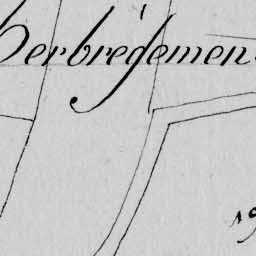 herbrégemen
19